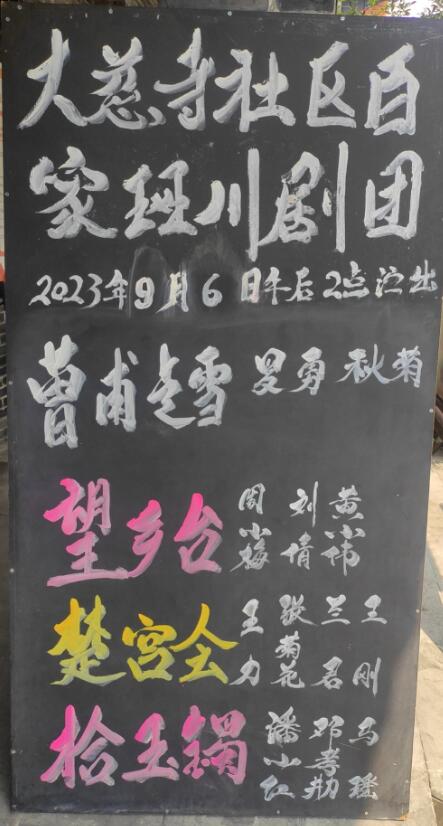 大慈寺社区百
家班川剧团
2023年9月6日午后2点演出
曹甫走雪 勇 秋菊
望乡台 周小梅 刘倩 黄小
楚宫仝 王力 张菊花 兰君 王刚
拾玉镯 潘小红 邓 马瑶